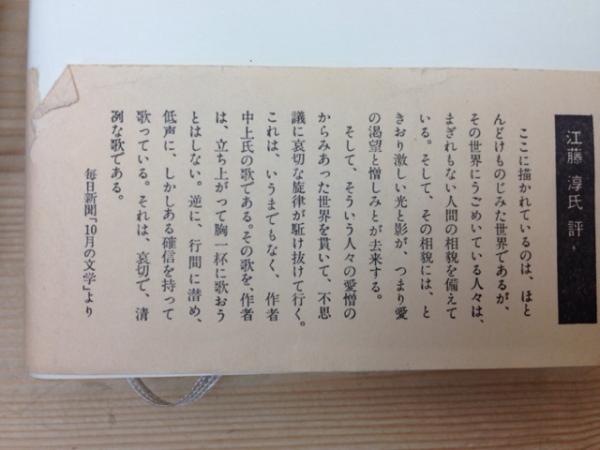 江藤 淳氏 評
ここに描かれているのは、ほと
んどけものじみた世界であるが、
その世界にうごめいている人々は、
まぎれもない人間の相貌を備えて
いる。そして、その相貌には、と
きおり激しい光と影が、つまり愛
の渇望と憎しみとが去来する。
そして、そういう人々の愛憎の
からみあった世界を貫いて、不思
議に哀切な旋律が駈け抜けて行く。
これは、いうまでもなく、作者
中上氏の歌である。その歌を、作者
は、立ち上がって胸一杯に歌おう
とはしない。逆に、行間に潜め、
低声に、しかしある確信を持って
歌っている。それは、哀切で、清
冽な歌である。
毎日新聞「10月の文学」より